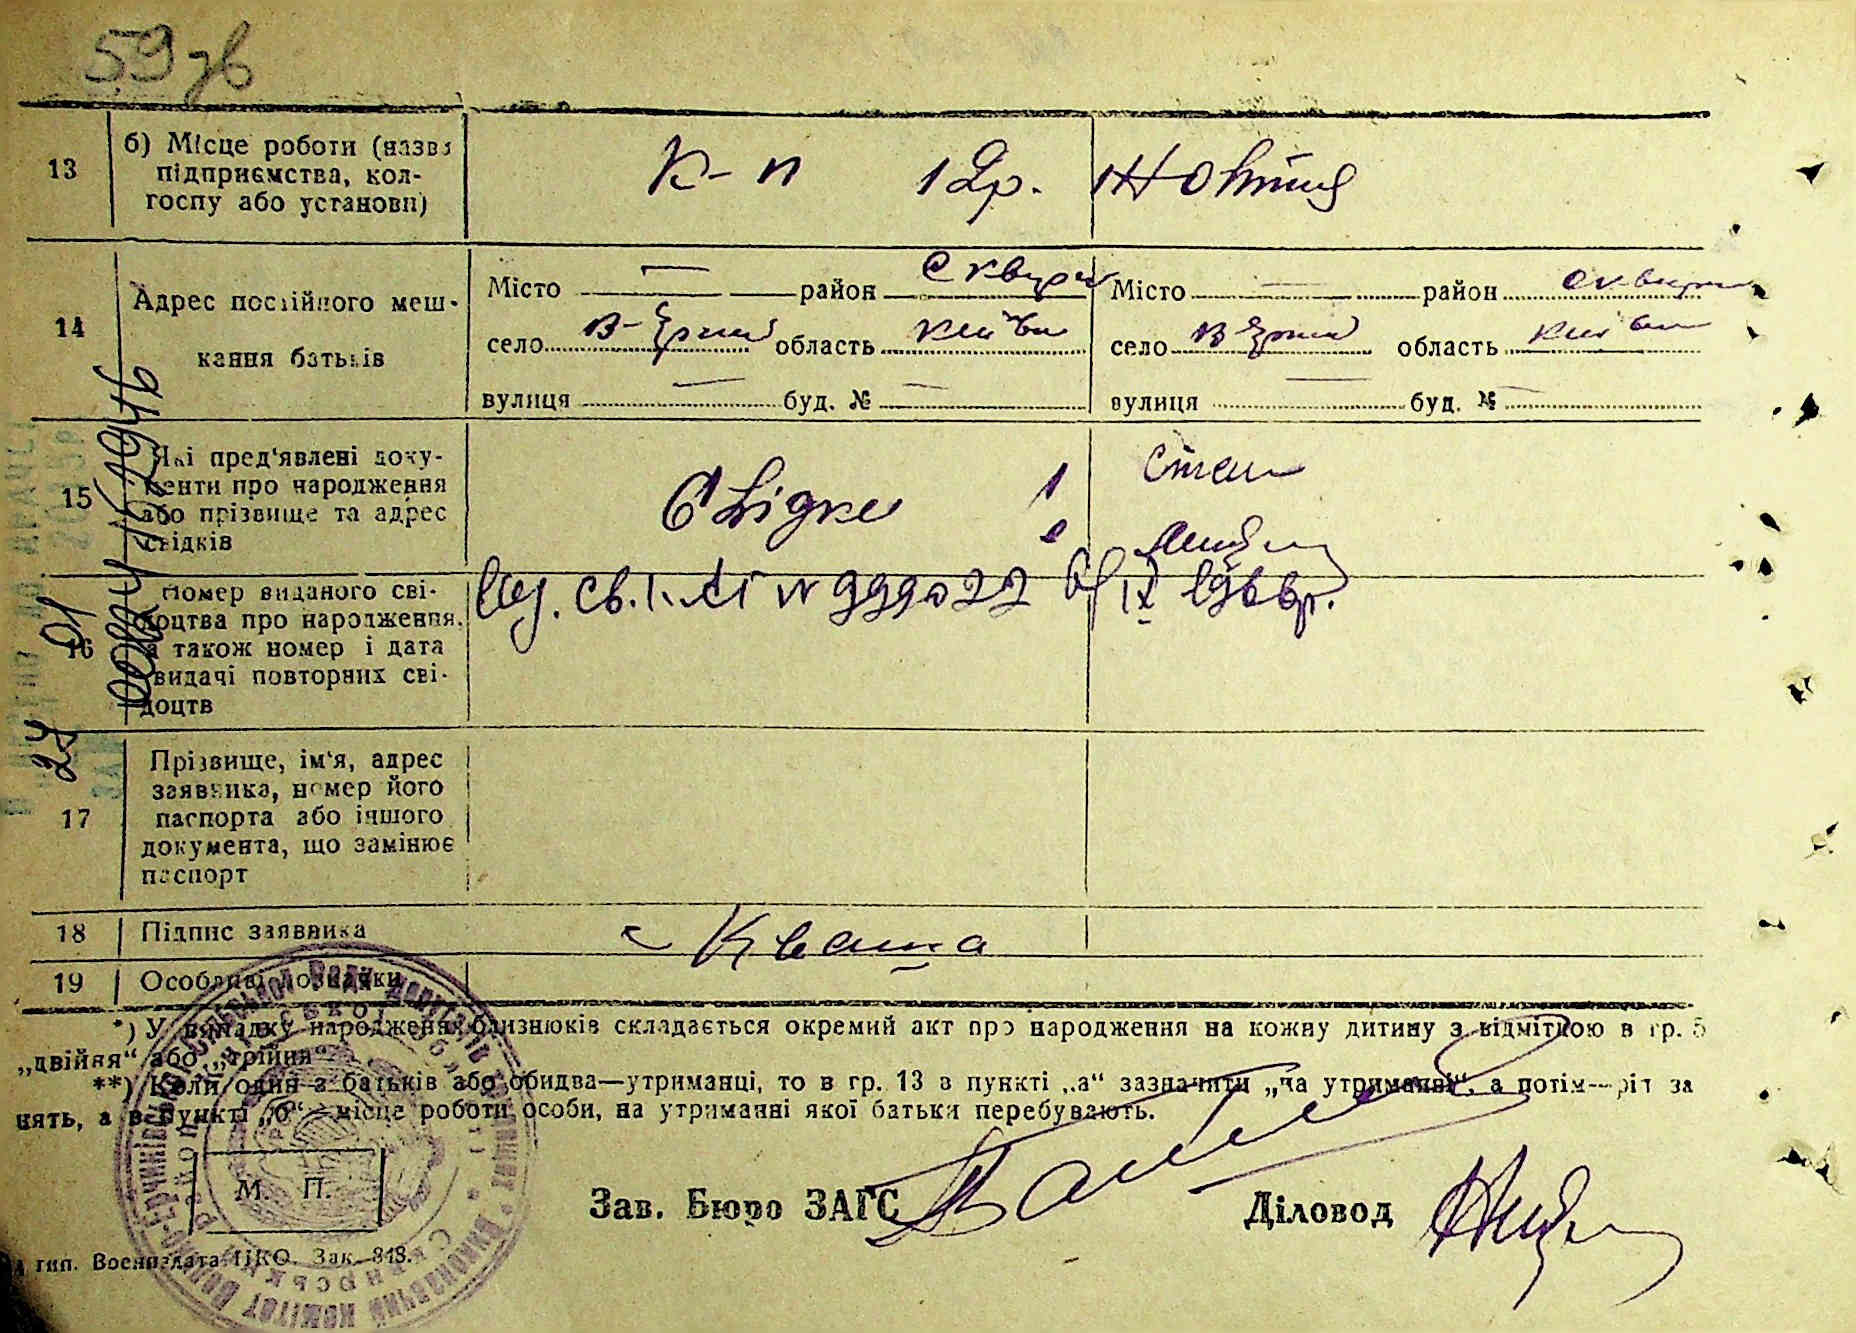 59 зв
13 б) Місце роботи (назва підприємства, колгоспу або установи)
К-п 12р. Жовтня
14 Адрес постійного мешкання батьків
Місто — район Сквирс Місто — район Сквирс
село В-Єрчик область Київ село В Єрчик область Київ
вулиця — буд. № — вулиця — буд. № —
15 Які пред'явлені документи про народження або прізвище та адрес свідків
Свідки 1
2
16 Номер виданого свідоцтва про народження, а також номер і дата видачі повторних свідоцтв
17 Прізвище, ім'я, адрес заявника, номер його паспорта або іншого документа, що замінює паспорт
18 Підпис заявника
Кваша
19 Особливі позначки
*) У випадку народження близнюків складається окремий акт про народження на кожну дитину з відміткою в гр. 5
„двійня“ або „трійня“
**) Коли один з батьків або обидва—утриманці, то в гр. 13 в пункті „а“ зазначити „на утриманні“, а потім—ріт за
нять, а в пункті „б“—місце роботи особи, на утриманні якої батьки перебувають.
М. П.
Зав. Бюро ЗАГС
Діловод
тип. Воениздата НКО. Зак. 818.